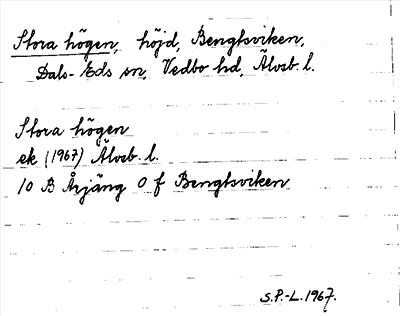 Stora högen, höjd, Bengtsviken,
Dals-Eds sn, Vedbo hd, Älvsb. l.
Stora högen
ek (1967) Älvsb. l.
10 B Årjäng O f Bengtsviken
S.P.-L. 1967.